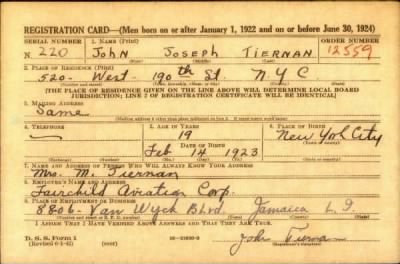 REGISTRATION CARD—(Men born on or after January 1, 1922 and on or before June 30, 1924)
SERIAL NUMBER 1. NAME (Print) ORDER NUMBER
N 220 JOHN JOSEPH TIERNAN 12559
2. PLACE OF RESIDENCE (Print)
520- West- 190th St. N.Y.C
[THE PLACE OF RESIDENCE GIVEN ON THE LINE ABOVE WILL DETERMINE LOCAL BOARD
JURISDICTION; LINE 2 OF REGISTRATION CERTIFICATE WILL BE IDENTICAL]
3. MAILING ADDRESS
Same
4. TELEPHONE 5. AGE IN YEARS 6. PLACE OF BIRTH
— 19 New York City
DATE OF BIRTH
Feb 14 1923
7. NAME AND ADDRESS OF PERSON WHO WILL ALWAYS KNOW YOUR ADDRESS
Mrs. M. Tiernan
8. EMPLOYER'S NAME AND ADDRESS
Fairchild Aviation Corp.
8806- Van Wyck Blvd. Jamaica L. I.
I AFFIRM THAT I HAVE VERIFIED ABOVE ANSWERS AND THAT THEY ARE TRUE.
D. S. S. Form 1
John Tiernan